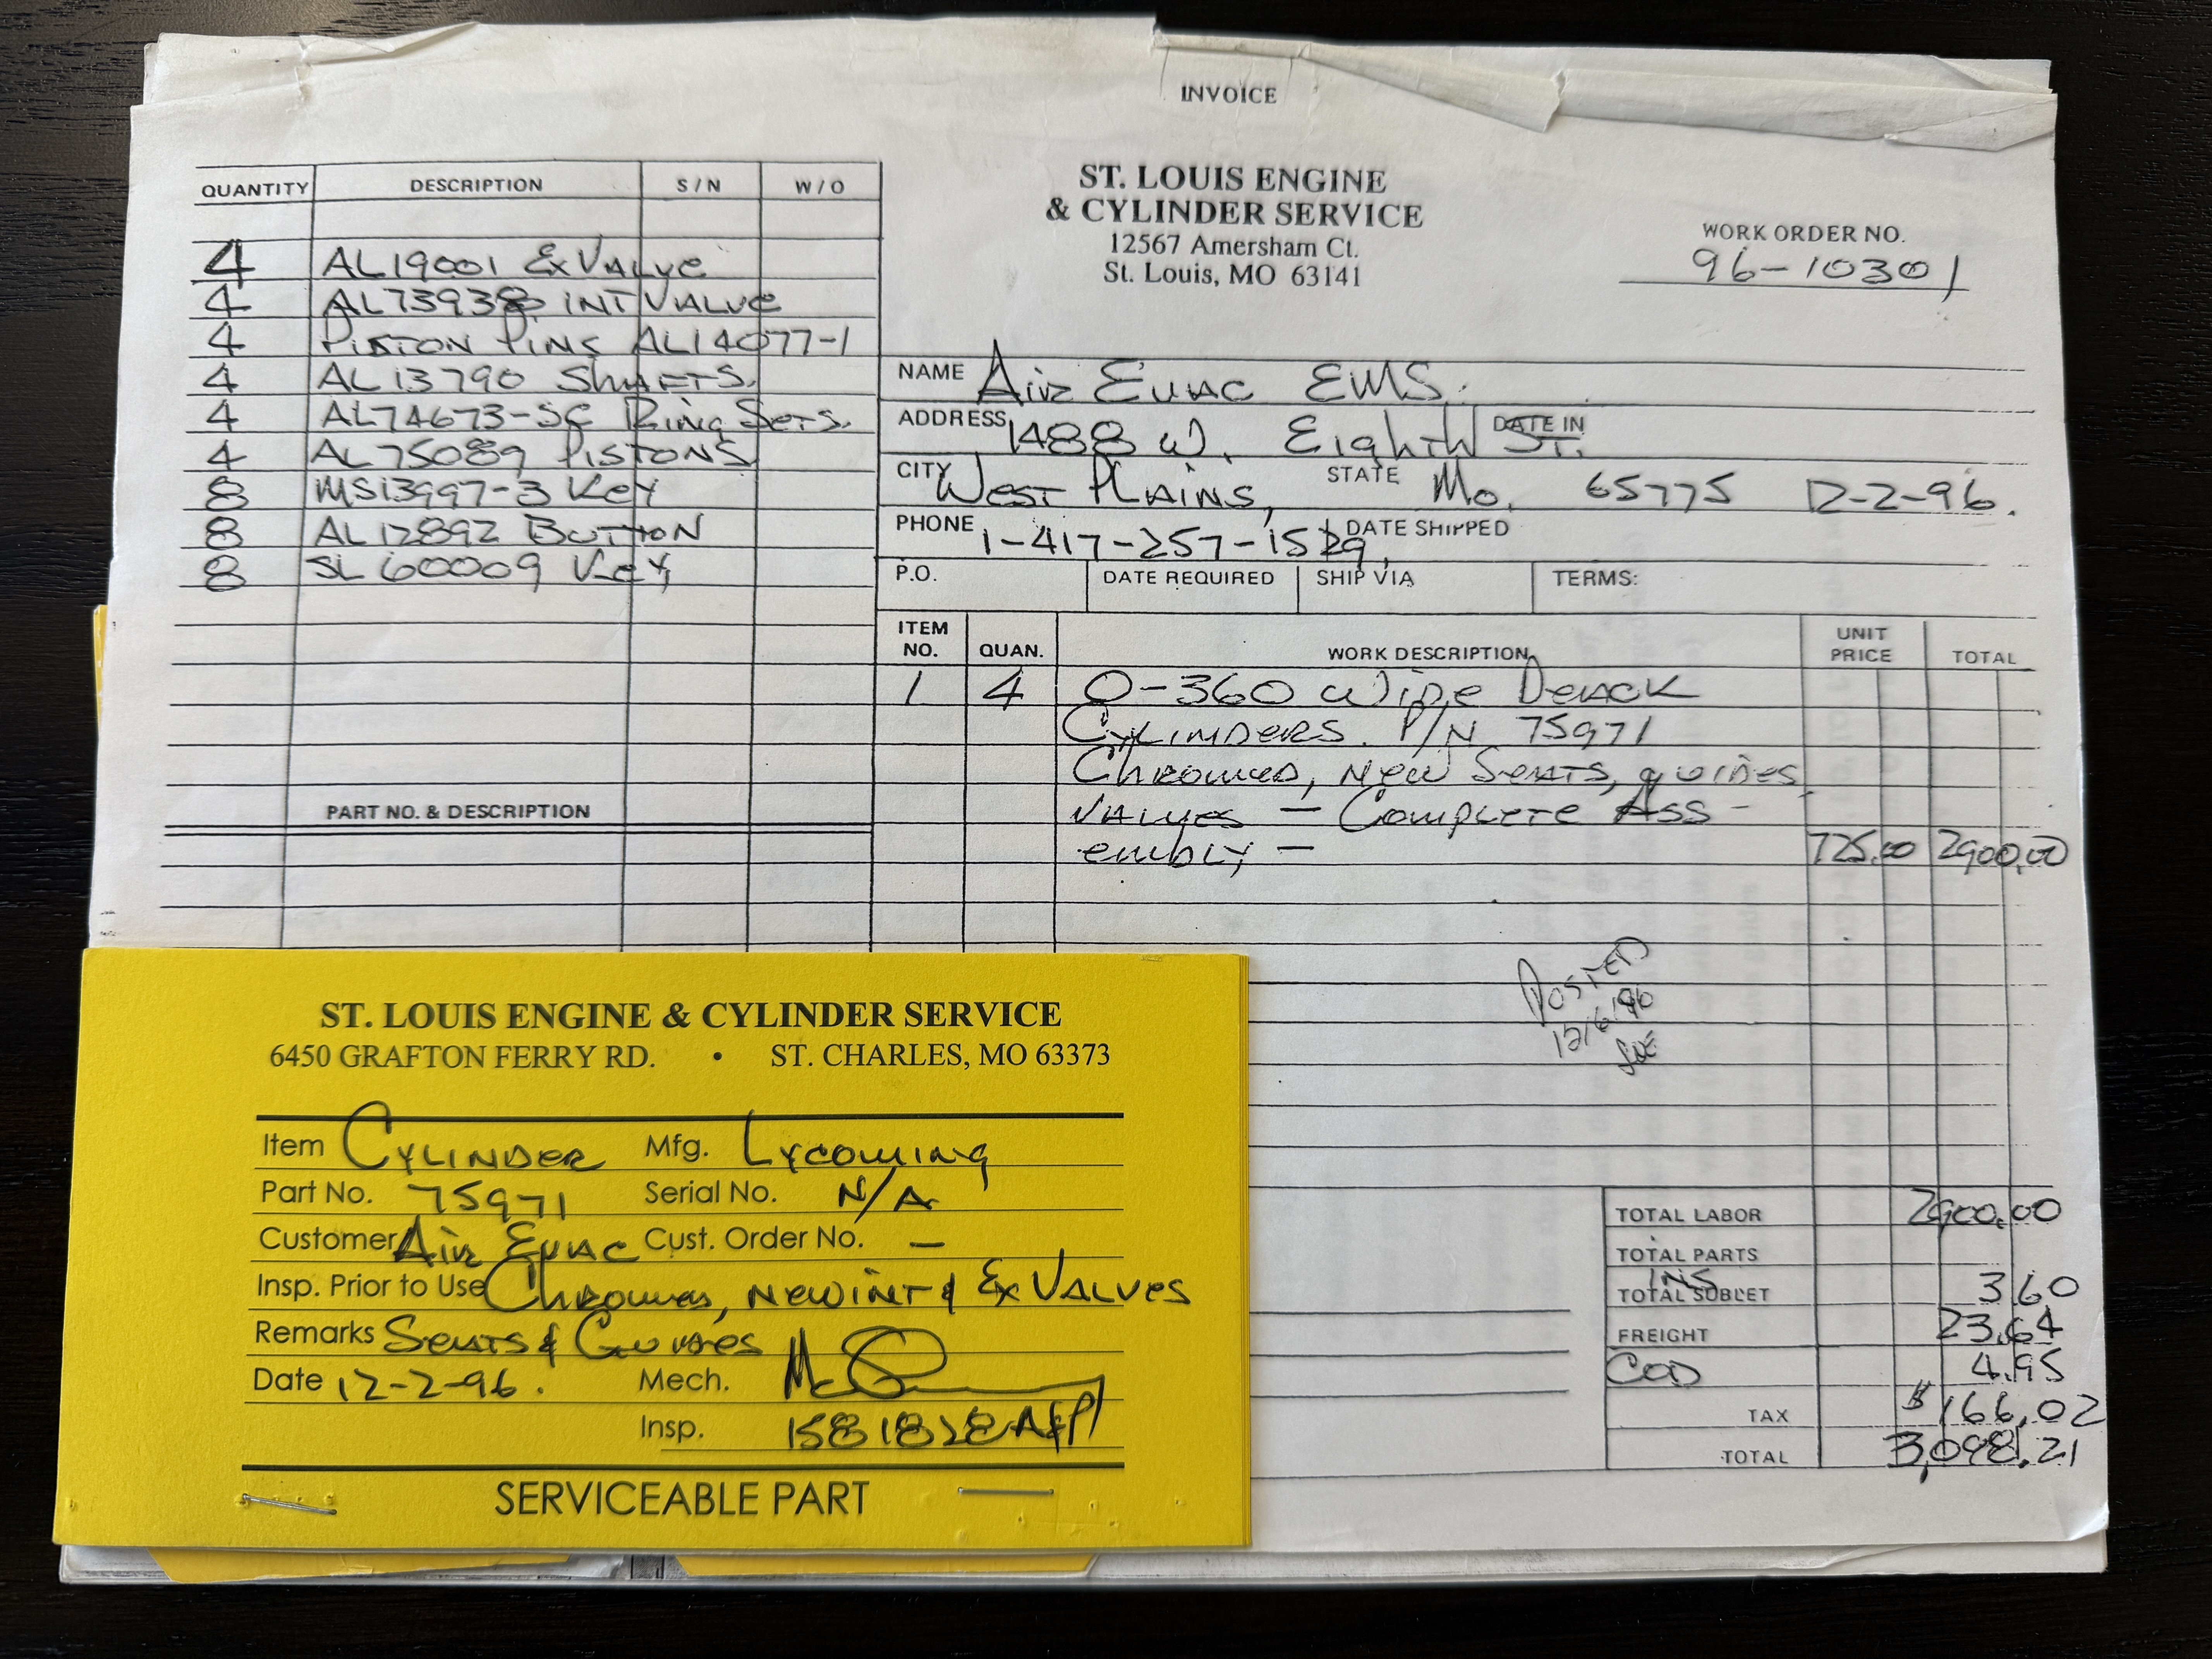 INVOICE
QUANTITY DESCRIPTION S/N W/O
4 AL19001 Ex Valve
4 AL73938 INT Valve
4 Piston Pins AL14077-1
4 AL13790 Shafts.
4 AL74673-SC Ring Sets.
4 AL75089 Pistons
8 MS13997-3 Key
8 AL12892 Button
8 SL60009 Key
PART NO. & DESCRIPTION
ST. LOUIS ENGINE
& CYLINDER SERVICE
12567 Amersham Ct.
St. Louis, MO 63141
WORK ORDER NO.
96-10301
NAME Air Evac EMS.
ADDRESS 1488 W. Eighth St. DATE IN
CITY West Plains, STATE Mo. 65775 12-2-96.
PHONE 1-417-257-1529 DATE SHIPPED
P.O. DATE REQUIRED SHIP VIA TERMS:
ITEM NO. QUAN. WORK DESCRIPTION UNIT PRICE TOTAL
1 4 O-360 Wide Deack
Cylinders. P/N 75971
Chromed, New Seats, guides,
Valves — Complete Ass-
embly — 725.00 2900.00
Posted
12/6/96
TOTAL LABOR 2900.00
TOTAL PARTS
INS
TOTAL SUBLET 3.60
FREIGHT 23.64
COD 4.95
TAX $166.02
TOTAL 3,098.21
ST. LOUIS ENGINE & CYLINDER SERVICE
6450 GRAFTON FERRY RD. • ST. CHARLES, MO 63373
Item Cylinder Mfg. Lycoming
Part No. 75971 Serial No. N/A
Customer Air Evac Cust. Order No. —
Insp. Prior to Use Chromed, New INT & Ex Valves
Remarks Seats & Guides
Date 12-2-96. Mech.
Insp. 1581828 A&P
SERVICEABLE PART